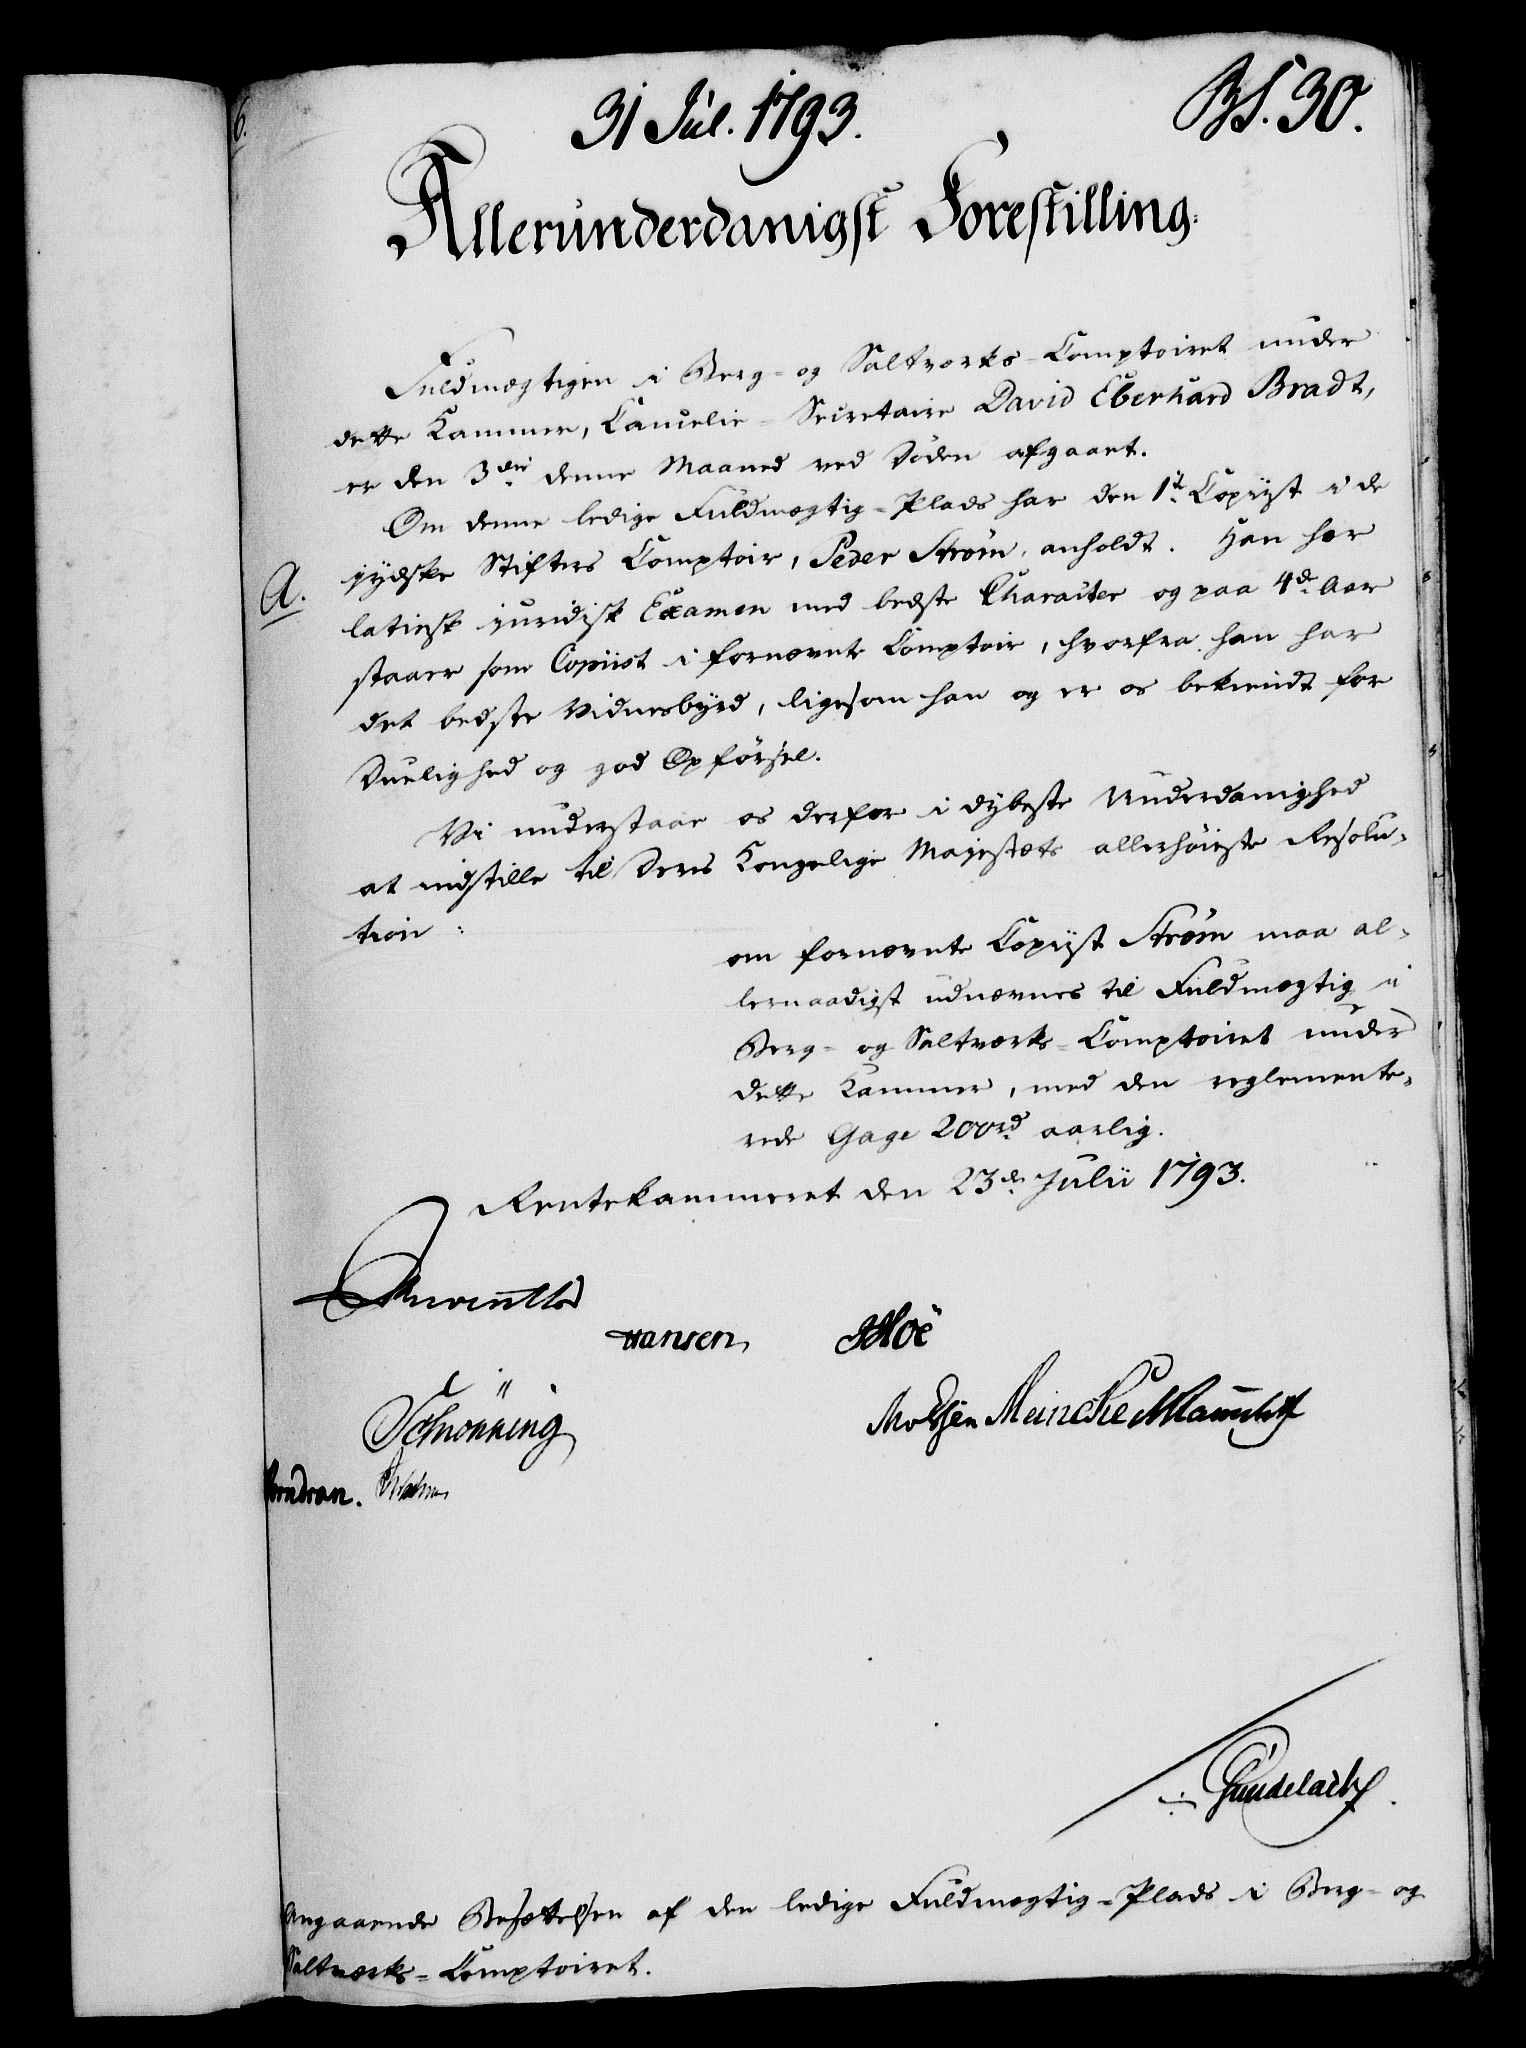 31 Jul. 1793.
BS. 30.
Allerunderdanigst Forestilling.
Fuldmægtigen i Berg- og Saltverks-Comptoiret under
dette Kammer, Cancelie-Secretaire David Eberhard Bradt,
er den 3die denne Maaned ved Døden afgaaet.
Om denne ledige Fuldmægtig-Plads har den 1ste Copiist i de
jydske Stifters Comptoir, Peder Strøm, anholdt. Han har
A.
latinsk juridisk Examen med bedste Character og paa 4de Aar
staaer som Copiist i fornævnte Comptoir, hvorfra han har
det bedste Vidnesbyrd, ligesom han og er os bekiendt for
Duelighed og god Opførsel.
Vi understaae os derfor i dybeste Underdanighed
at indstille til Deres Kongelige Majestæts allerhøieste Resolu-
tion:
om fornævnte Copiist Strøm maa al-
lernaadigst udnævnes til Fuldmægtig i
Berg- og Saltværks-Comptoiret under
dette Kammer, med den reglemente-
rede Gage 200 rd aarlig.
Rentekammeret den 23de Julii 1793.
Reventlow
Hansen
Hoë
Schønning
Meincke
Gundelach
Angaaende Besættelsen af den ledige Fuldmægtig-Plads i Berg- og
Saltværks-Comptoiret.